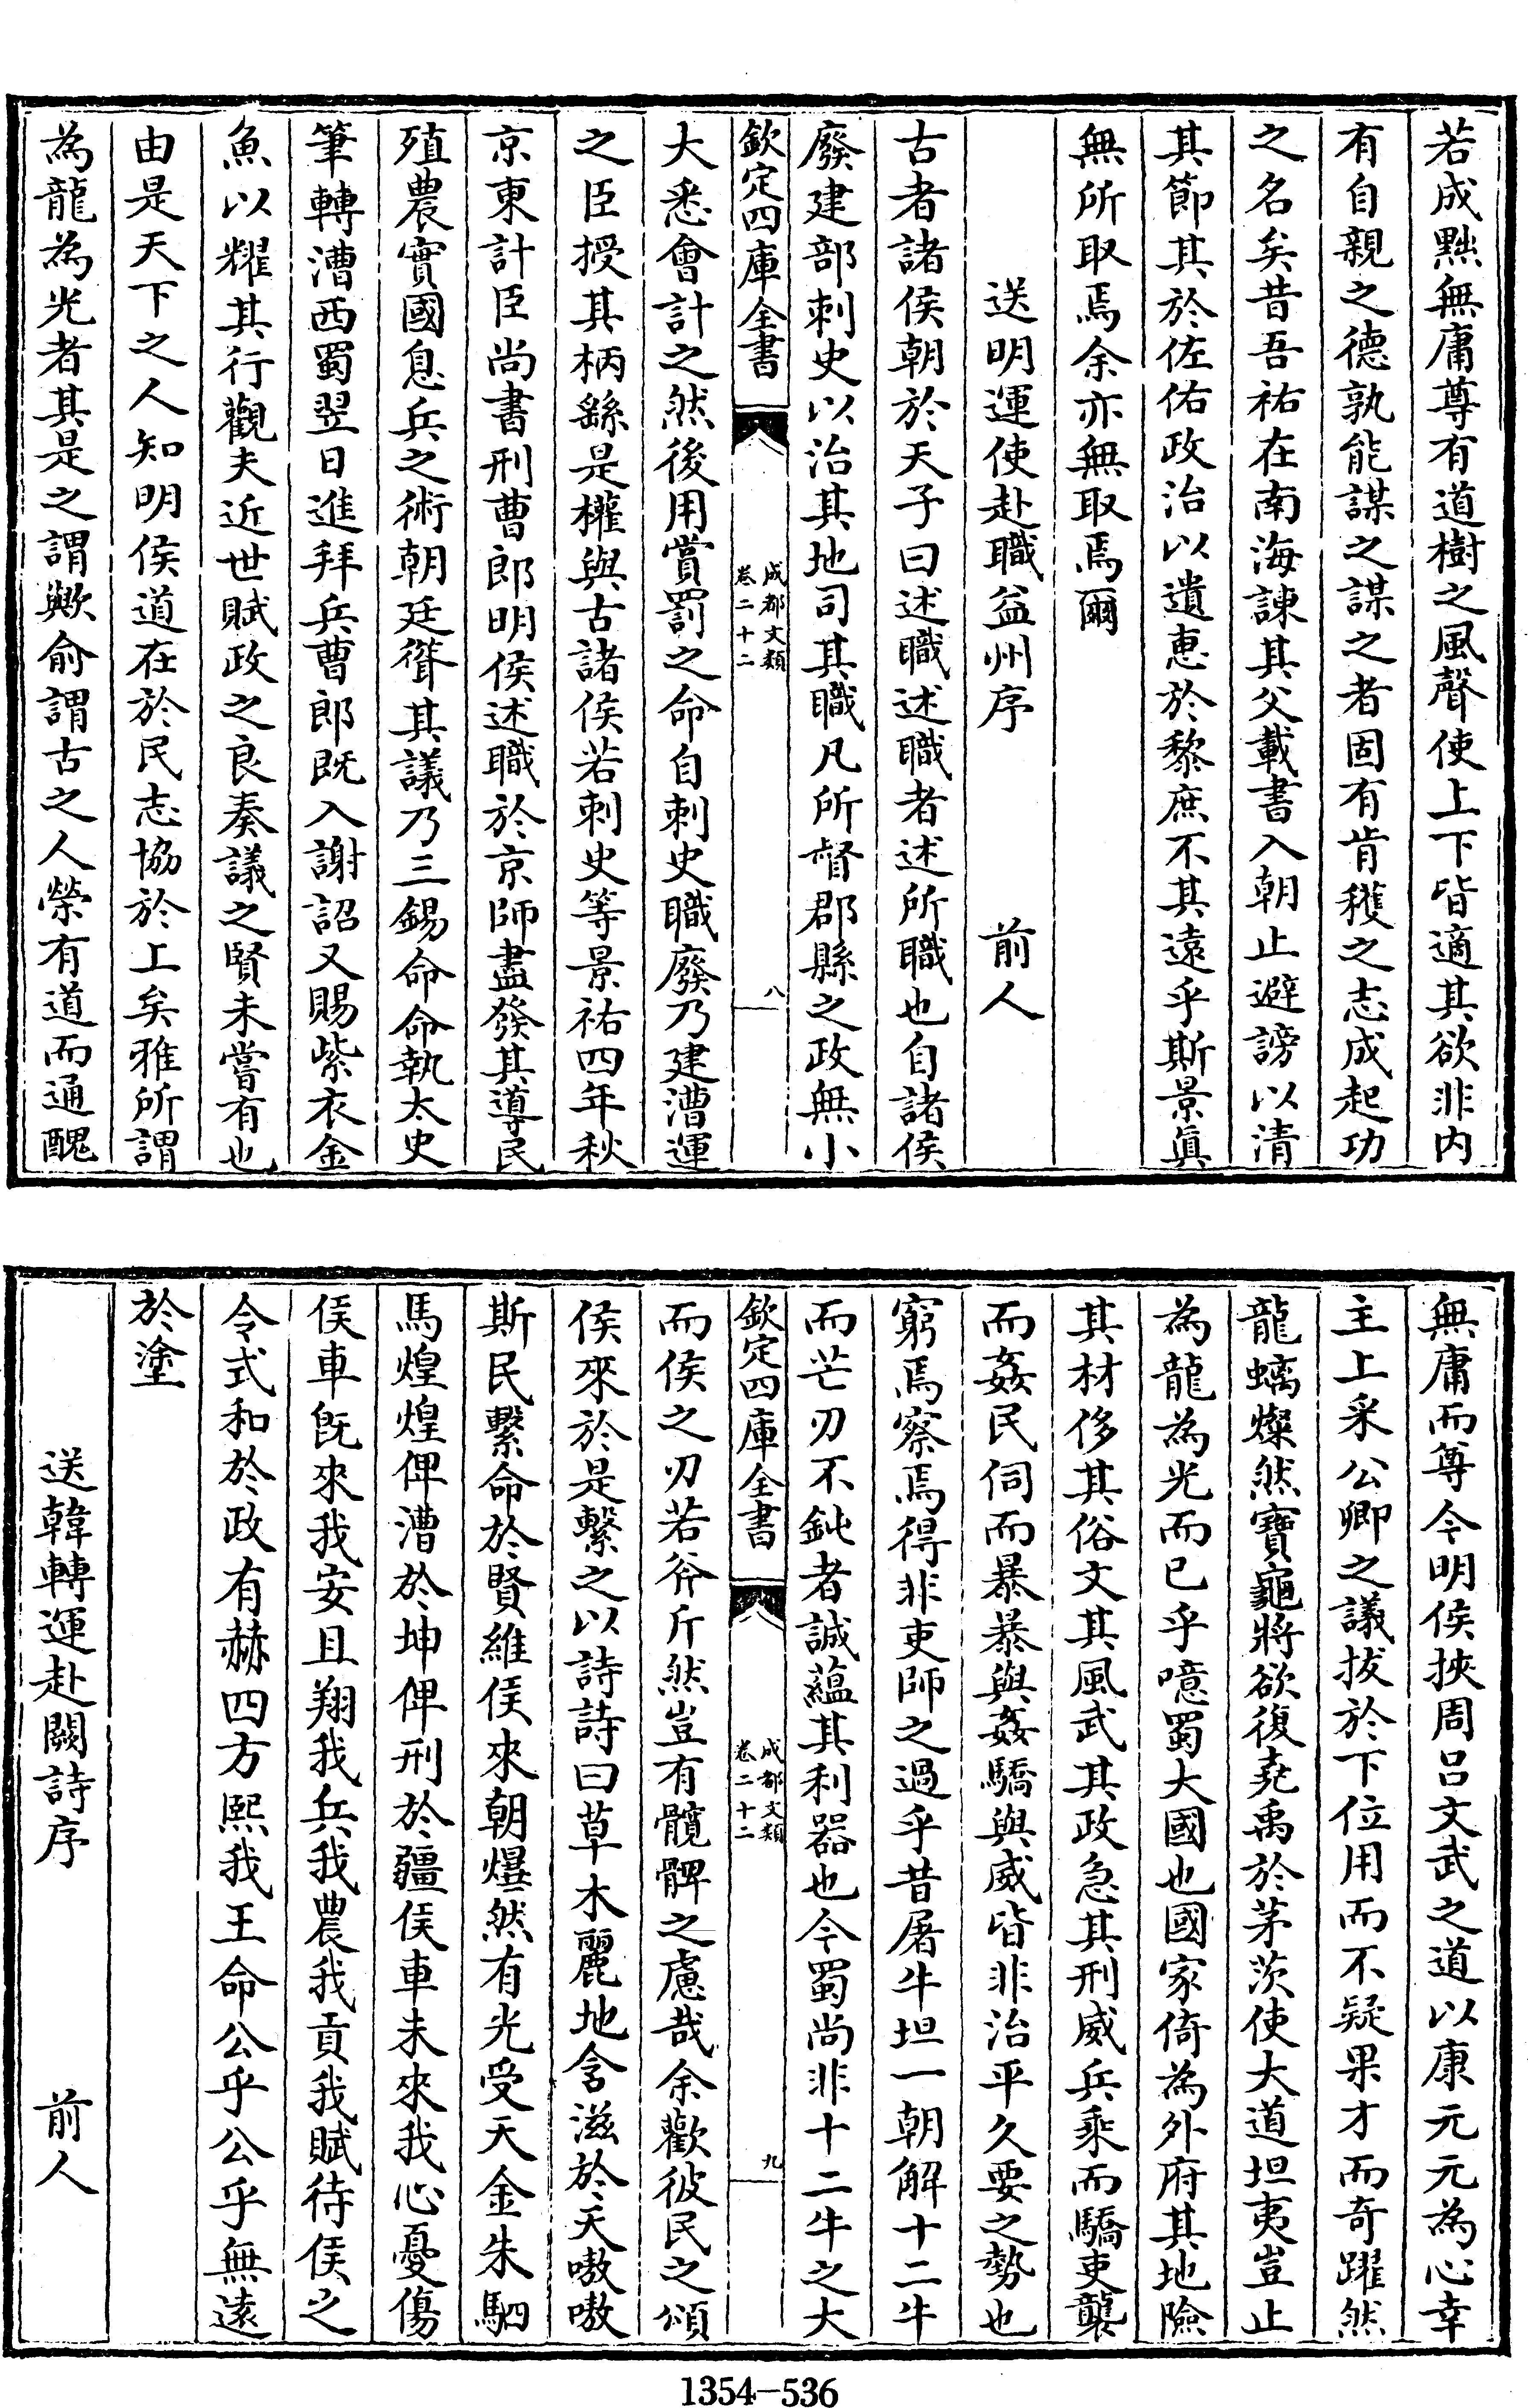 若成黜無庸尊有道樹之風聲使上下皆適其欲非内
有自親之德孰能謀之謀之者固有肯穫之志成起功
之名矣昔吾祐在南海諫其父載書入朝止避謗以清
其節其於佐佑政治以遺恵於黎庶不其遠乎斯景真
無所取焉余亦無取焉爾
送明運使赴職益州序 前人
古者諸侯朝於天子曰述職述職者述所職也自諸侯
廢建部刺史以治其地司其職凡所督郡縣之政無小
欽定四庫全書 成都文類 卷二十二 八
大悉會計之然後用賞罰之命自刺史職廢乃建漕運
之臣授其柄繇是權與古諸侯若刺史等景祐四年秋
京東計臣尚書刑曹郎明侯述職於京師盡發其導民
殖農實國息兵之術朝廷聳其議乃三錫命命執太史
筆轉漕西蜀翌日進拜兵曹郎既入謝詔又賜紫衣金
魚以耀其行觀夫近世賦政之良奏議之賢未嘗有也
由是天下之人知明侯道在於民志協於上矣雅所謂
為龍為光者其是之謂歟俞謂古之人榮有道而通醜
無庸而尊今明侯挾周吕文武之道以康元元為心幸
主上采公卿之議拔於下位用而不疑果才而奇躍然
龍螭燦然寶龜將欲復堯禹於茅茨使大道坦夷豈止
為龍為光而已乎噫蜀大國也國家倚為外府其地險
其材侈其俗文其風武其政急其刑威兵乘而驕吏襲
而姦民伺而暴暴與姦驕與威皆非治平久要之勢也
窮焉察焉得非吏師之過乎昔屠牛坦一朝解十二牛
而芒刃不鈍者誠藴其利器也今蜀尚非十二牛之大
欽定四庫全書 成都文類 卷二十二 九
而侯之刃若斧斤然豈有髖髀之慮哉余歡彼民之頌
侯來於是繫之以詩詩曰草木麗地含滋於天嗷嗷
斯民繫命於賢維侯來朝爆然有光受天金朱駟
馬煌煌俾漕於坤俾刑於疆侯車未來我心憂傷
侯車既來我安且翔我兵我農我貢我賦待侯之
令式和於政有赫四方熙我王命公乎公乎無遠
於塗
送韓轉運赴闕詩序 前人
1354—536